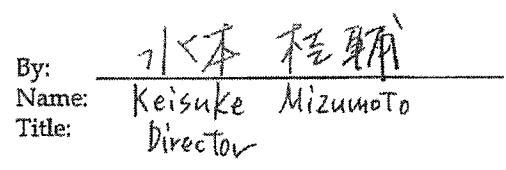 By: 水本 桂輔
Name: Keisuke Mizumoto
Title: Director